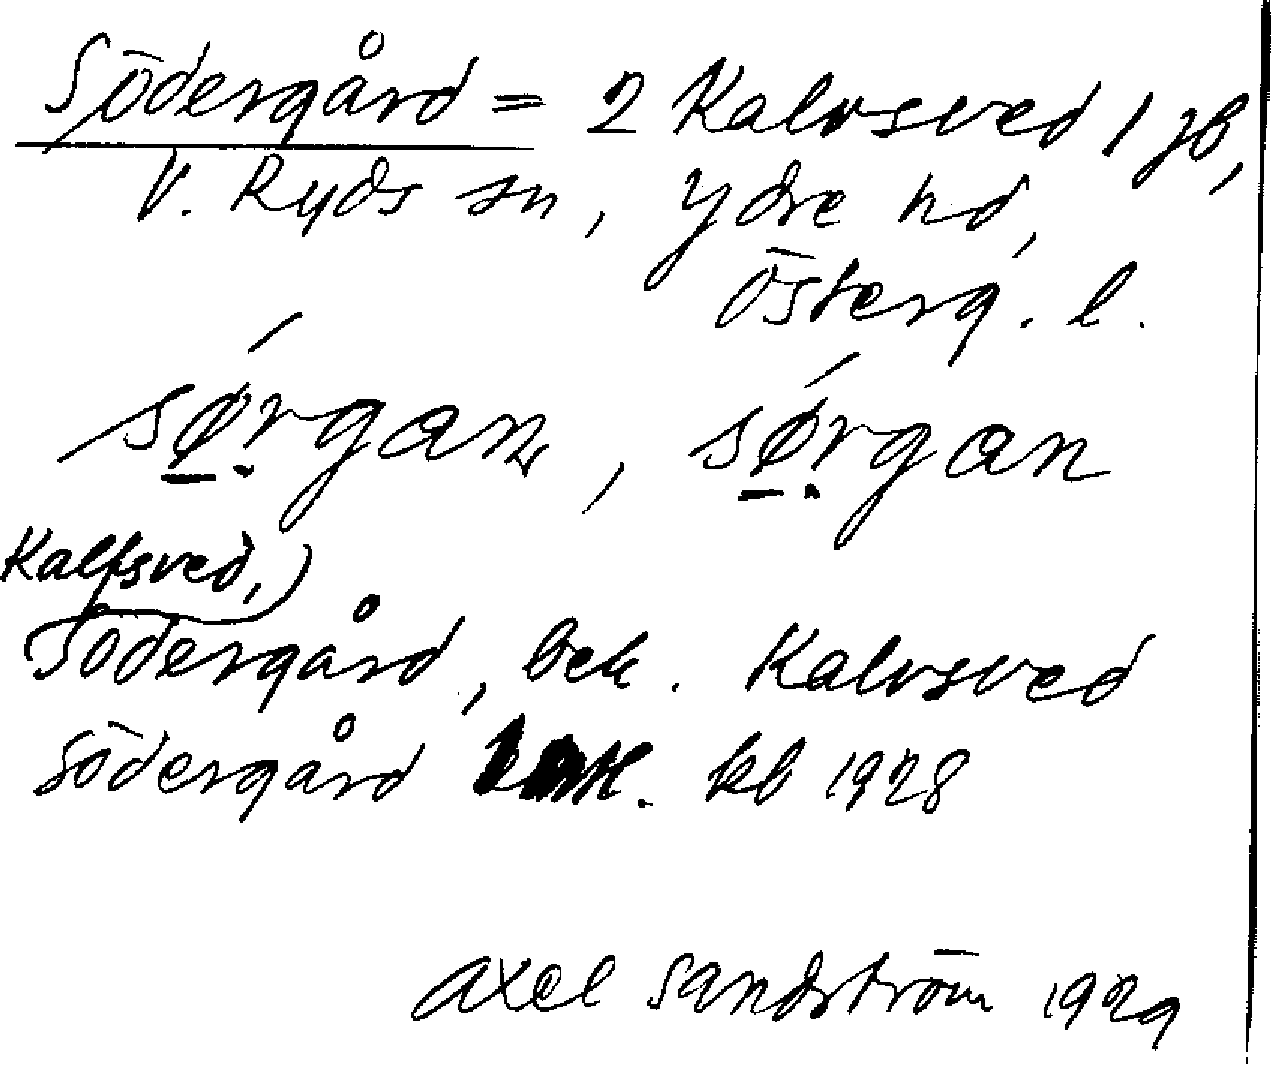 Södergård = 2 Kalvsved 1 jb,
V. Ryds sn, Ydre hd,
Österg. l.
sǿ̱ṛgan, sǿ̱ṛgan
Kalfsved,
Södergård, bek. Kalvsved
Södergård kb 1928
Axel Sandström 1929